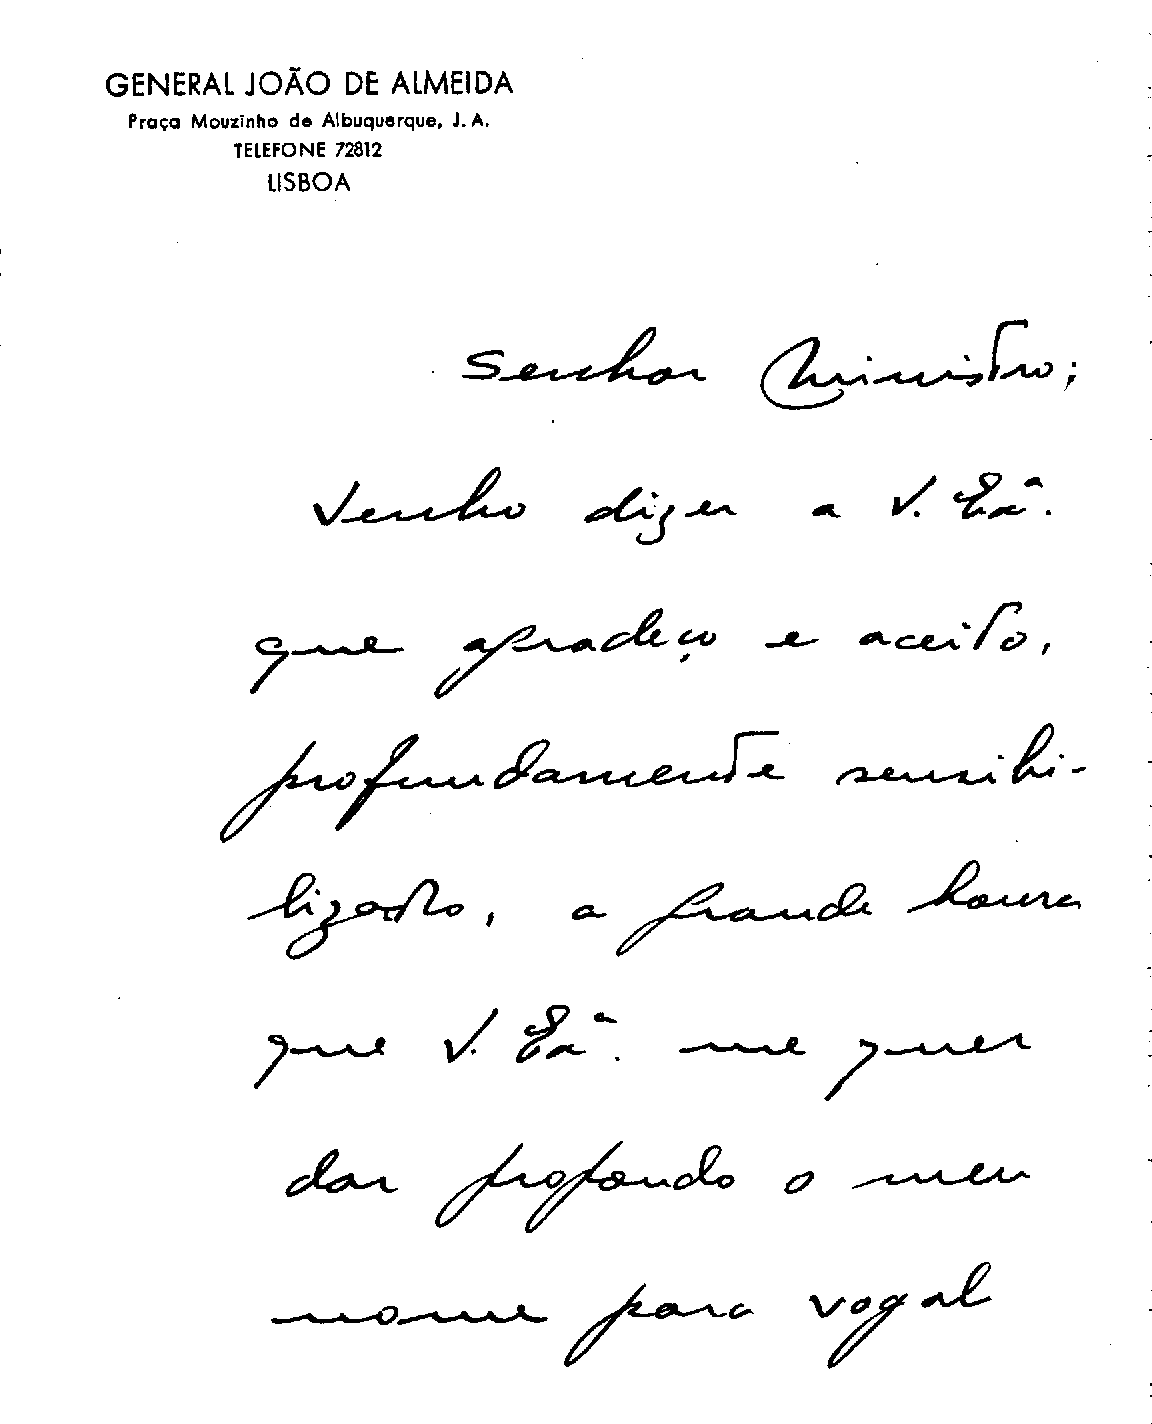 GENERAL JOÃO DE ALMEIDA
Praça Mouzinho de Albuquerque, J. A.
TELEFONE 72812
LISBOA
Senhor Ministro;
Venho dizer a V. Exª.
que agradeço e aceito,
profundamente sensibi-
lizado, a grande honra
que V. Exª. me quer
dar propondo o meu
nome para vogal